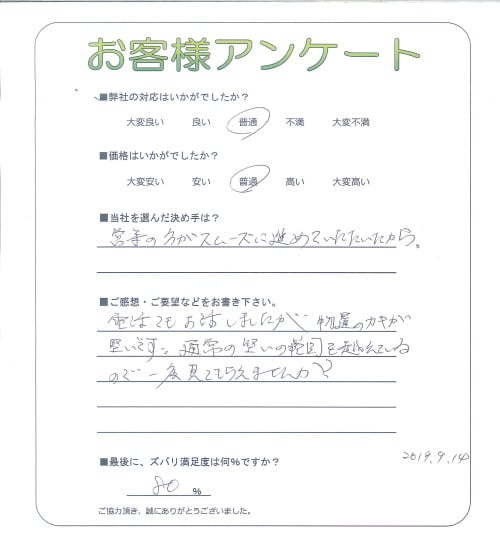 お客様アンケート
■弊社の対応はいかがでしたか？
大変良い 良い 普通 不満 大変不満
■価格はいかがでしたか？
大変安い 安い 普通 高い 大変高い
■当社を選んだ決め手は？
営業の方がスムーズに進めていただいたから。
■ご感想・ご要望などをお書き下さい。
電話でもお話しましたが 物置のカギが
堅いです。通常の堅いの範囲を超えている
ので一度見てもらえませんか？
■最後に、ズバリ満足度は何%ですか？
2019.9.14
80 %
ご協力頂き、誠にありがとうございました。